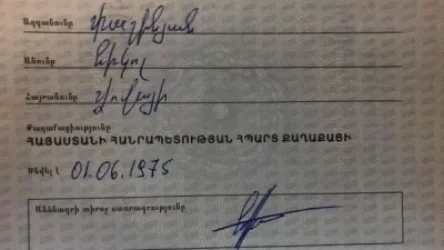 Ազգանունը Փաշինյան
Անունը Նիկոլ
Հայրանունը Վովայի
Քաղաքացիությունը
ՀԱՅԱՍՏԱՆԻ ՀԱՆՐԱՊԵՏՈՒԹՅԱՆ ՀՊԱՐՏ ՔԱՂԱՔԱՑԻ
Ծնվել է 01.06.1975
Անձնագրի տիրոջ ստորագրությունը